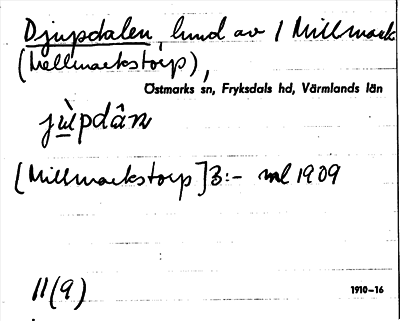 Djupdalen, lund av 1 Millmark
(Mellmarkstorp),
Östmarks sn, Fryksdals hd, Värmlands län
jùpdân
[Millmarkstorp] 3:- ml 1909
11(9)
1910-16